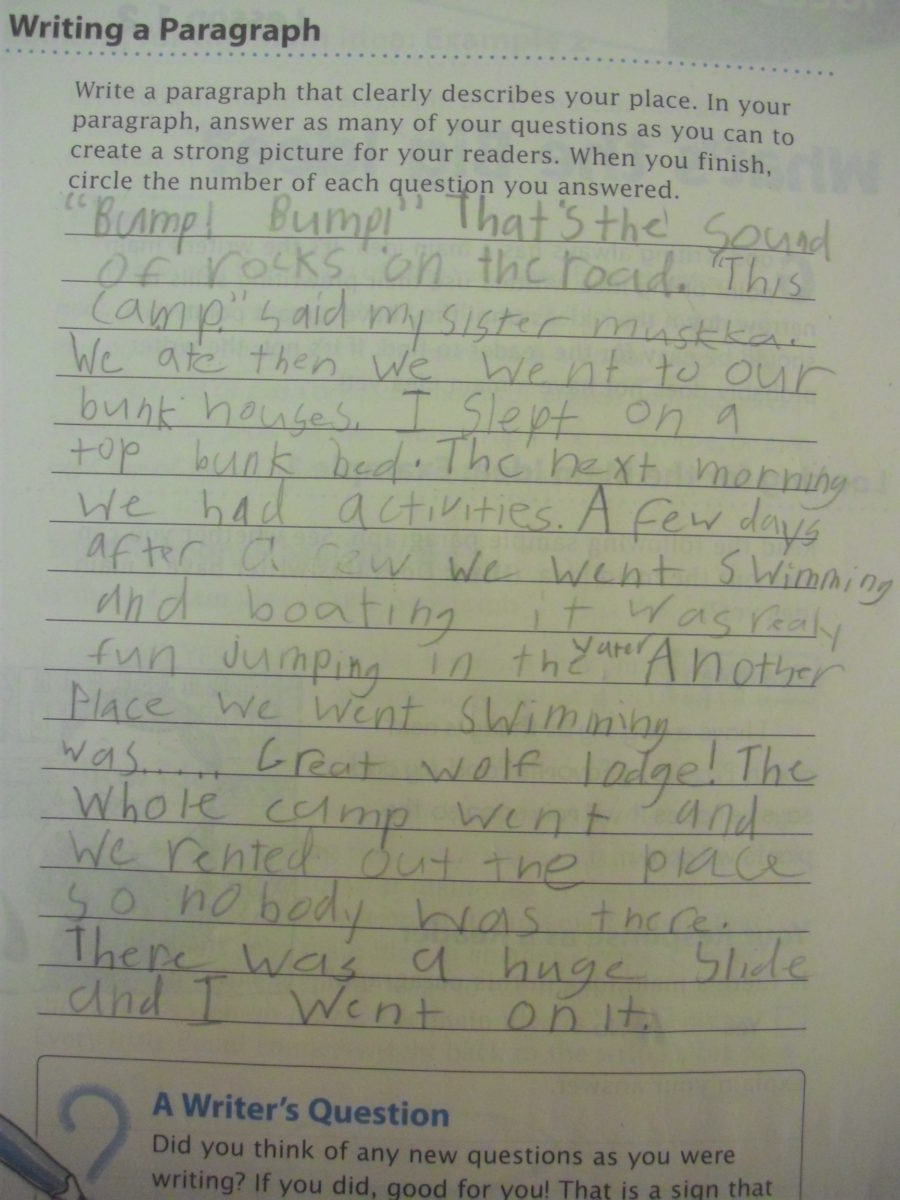 Writing a Paragraph
Write a paragraph that clearly describes your place. In your
paragraph, answer as many of your questions as you can to
create a strong picture for your readers. When you finish,
circle the number of each question you answered.
"Bump! Bump!" That's the sound
Of rocks on the road. "This
Camp." said my sister muskka.
We ate then we went to our
bunk houses. I Slept on a
top bunk bed. The next morning
We had activities. A few days
after a few we went swimming
and boating it was realy
fun jumping in the water Another
Place we went swimming
was...... Great wolf lodge! The
Whole camp went and
We rented out the place
so nobody was there.
There was a huge Slide
and I went on it.
A Writer's Question
Did you think of any new questions as you were
writing? If you did, good for you! That is a sign that